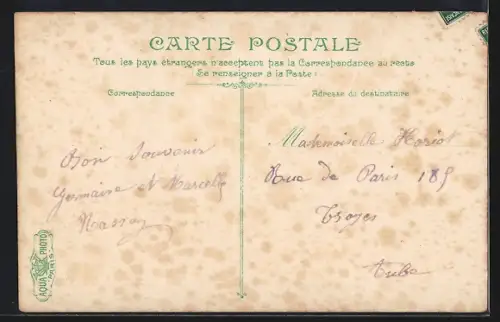 CARTE POSTALE
Tous les pays étrangers n'acceptent pas la Correspondance au recto
(Se renseigner à la Poste)
Correspondance
Adresse du destinataire
Bon Souvenir
Germaine et Marcelle
Mademoiselle Horiot
Rue de Paris 185
Troyes
Aube
AQUA PHOTO
PARIS